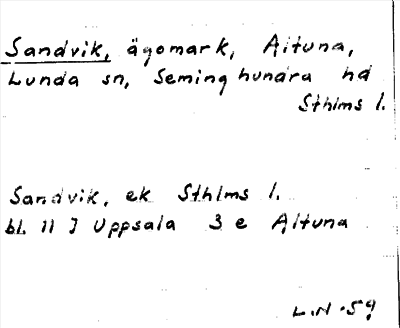 Sandvik, ägomark, Altuna,
Lunda sn, Seminghundra hd
Sthlms l.
Sandvik, ek Sthlms l.
bl. 11 I Uppsala 3 e Altuna
L.N. 59